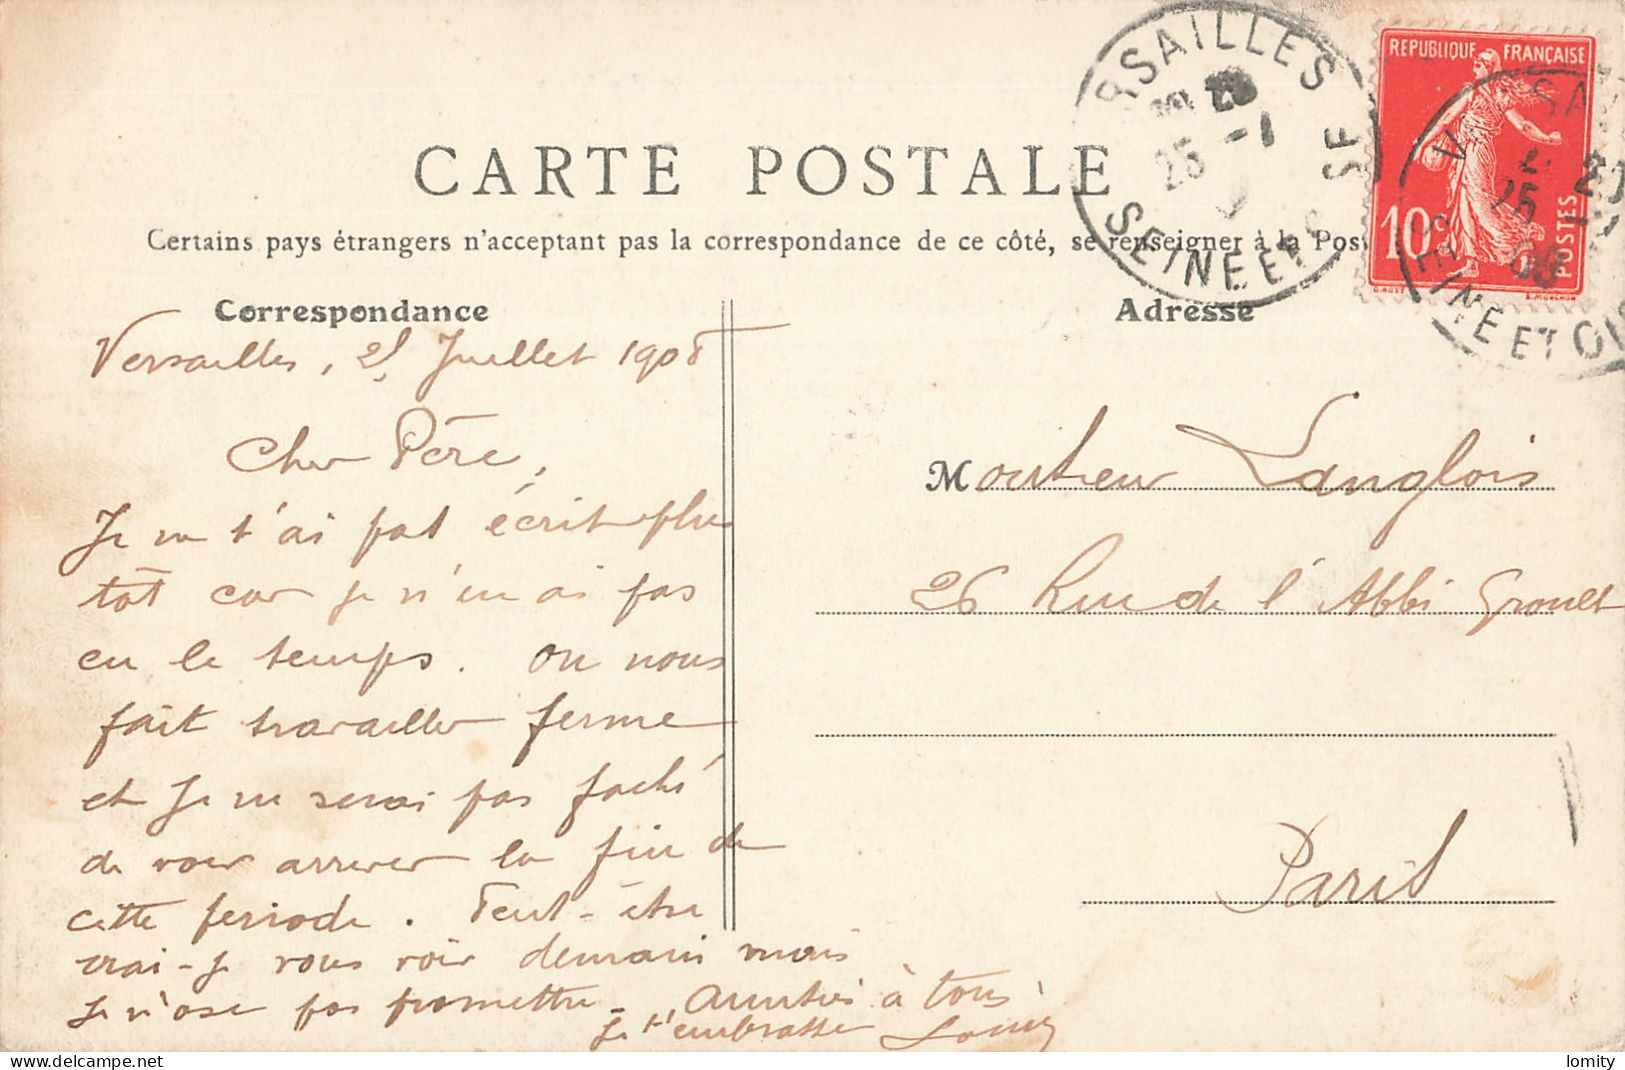 CARTE POSTALE
Certains pays étrangers n'acceptant pas la correspondance de ce côté, se renseigner à la Pos
RSAILLES
25 -
SEINE ET
REPUBLIQUE FRANÇAISE
10c
POSTES
O. ROTY
E. MOUCHON
SEINE ET OIS
Correspondance
Versailles, 25 Juillet 1908
Cher Père,
Je ne t'ai pas écrit plus
tôt car je n'en ai pas
eu le temps. On nous
fait travailler ferme
et je ne serai pas faché
de voir arriver la fin de
cette periode. Peut-être
irai-je vous voir demain mais
je n'ose pas promettre. Amitiés à tous
Je t'embrasse Louis
Adresse
Monsieur Langlois
26 Rue de l'Abbé Groult
Paris
lomity